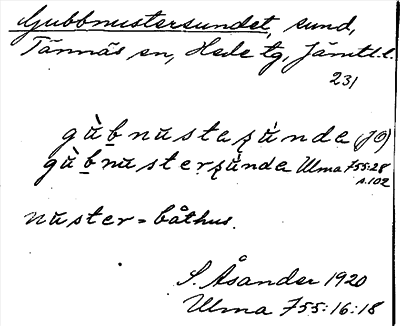 Gubbnustersundet, sund,
Tännäs sn, Hede tg, Jämtl. l.
231
gùb̲nustesùnde (JO)
gùb̲nustersùnde Ulma 755:28
s. 102
nuster = båthus.
S. Åsander 1920
Ulma 755:16:18